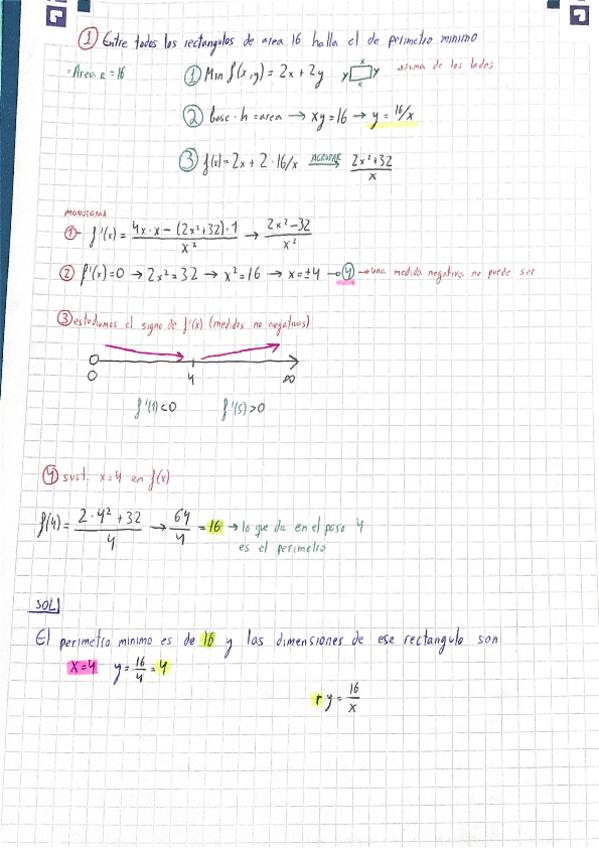 ① Entre todos los rectangulos de area 16 halla el de perimetro minimo
· Area R = 16
① Min f(x,y) = 2x + 2y y x y suma de los lados
② base · h = area → xy = 16 → y = 16/x
③ f(x) = 2x + 2 · 16/x AGRUPAR → (2x²+32)/x
MONOTONIA
①- f'(x) = (4x·x − (2x²+32)·1)/x² → (2x²−32)/x²
② f'(x)=0 → 2x²=32 → x²=16 → x=±4 → 4 → una medida negativa no puede ser
③ estudiamos el signo de f'(x) (medidas no negativas)
0 4 ∞
f'(1)<0 f'(5)>0
④ sust. x=4 en f(x)
f(4) = (2·4²+32)/4 → 64/4 = 16 → lo que da en el paso 4
es el perimetro
SOL
El perimetro minimo es de 16 y las dimensiones de ese rectangulo son
x=4 y = 16/4 = 4
y = 16/x